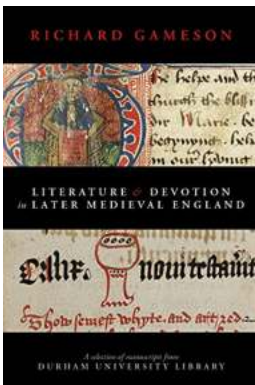 RICHARD GAMESON
be helpe and th
thurgh the bliss
Marie. be
begynnyng. hel
in our
LITERATURE & DEVOTION
in LATER MEDIEVAL ENGLAND
Calix.
noui testam
Show semest whyte. and art; red
A selection of manuscripts from
DURHAM UNIVERSITY LIBRARY